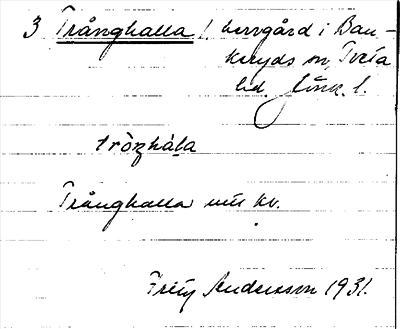 3 Trånghalla /, herrgård i Ban-
keryds sn, Tveta
hd. Jönk. l.
tròŋhàla
Trånghalla utt kv.
Fritz Andersson 1931.